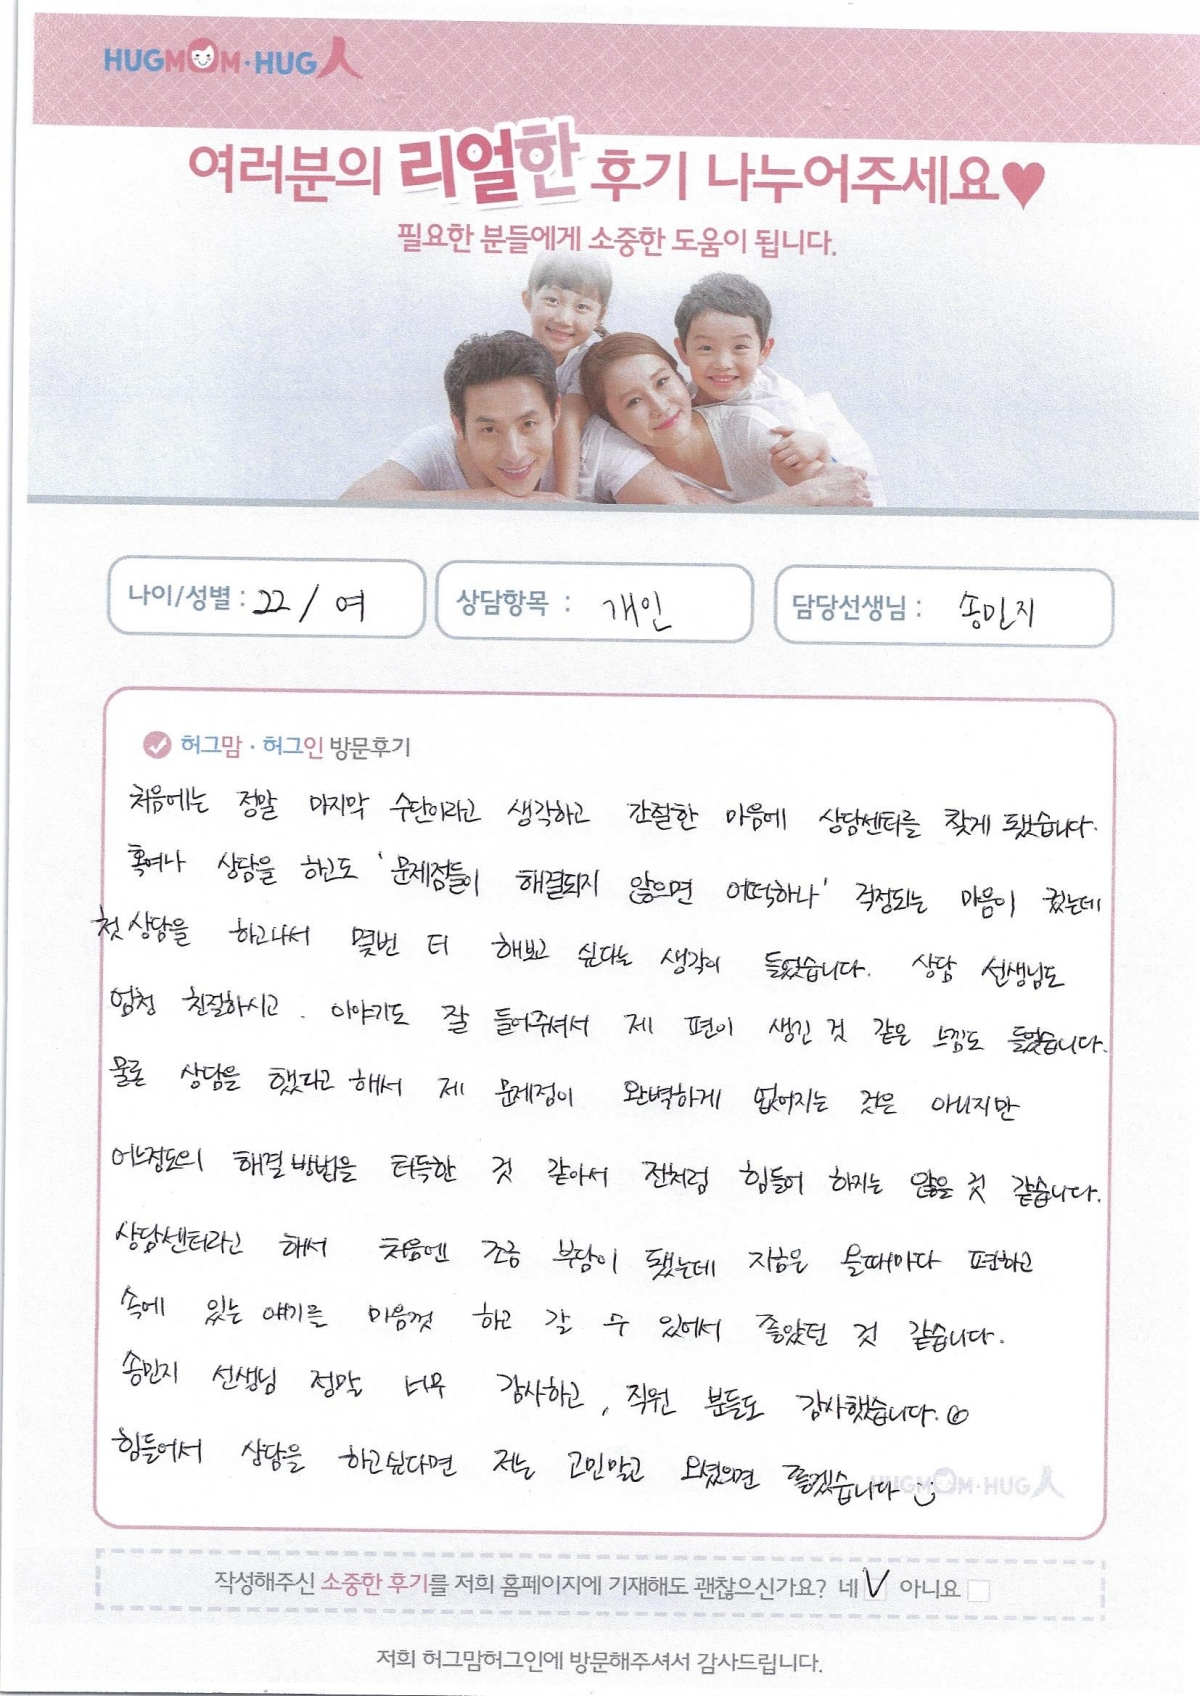 HUGMOM·HUG人
여러분의 리얼한 후기 나누어주세요♥
필요한 분들에게 소중한 도움이 됩니다.
나이/성별 : 22 / 여
상담항목 : 개인
담당선생님 : 송민지
허그맘 · 허그인 방문후기
처음에는 정말 마지막 수단이라고 생각하고 간절한 마음에 상담센터를 찾게 됐습니다.
혹여나 상담을 하고도 '문제점들이 해결되지 않으면 어떡하나' 걱정되는 마음이 컸는데
첫 상담을 하고나서 몇번 더 해보고 싶다는 생각이 들었습니다. 상담 선생님도
엄청 친절하시고. 이야기도 잘 들어주셔서 제 편이 생긴 것 같은 느낌도 들었습니다.
물론 상담을 했다고 해서 제 문제점이 완벽하게 없어지는 것은 아니지만
어느정도의 해결 방법을 터득한 것 같아서 전처럼 힘들어 하지는 않을 것 같습니다.
상담센터라고 해서 처음엔 조금 부담이 됐는데 지금은 올때마다 편하고
속에 있는 얘기를 마음껏 하고 갈 수 있어서 좋았던 것 같습니다.
송민지 선생님 정말 너무 감사하고, 직원 분들도 감사했습니다.
힘들어서 상담을 하고싶다면 저는 고민말고 오셨으면 좋겠습니다
HUGMOM·HUG人
작성해주신 소중한 후기를 저희 홈페이지에 기재해도 괜찮으신가요? 네 V 아니요
저희 허그맘허그인에 방문해주셔서 감사드립니다.